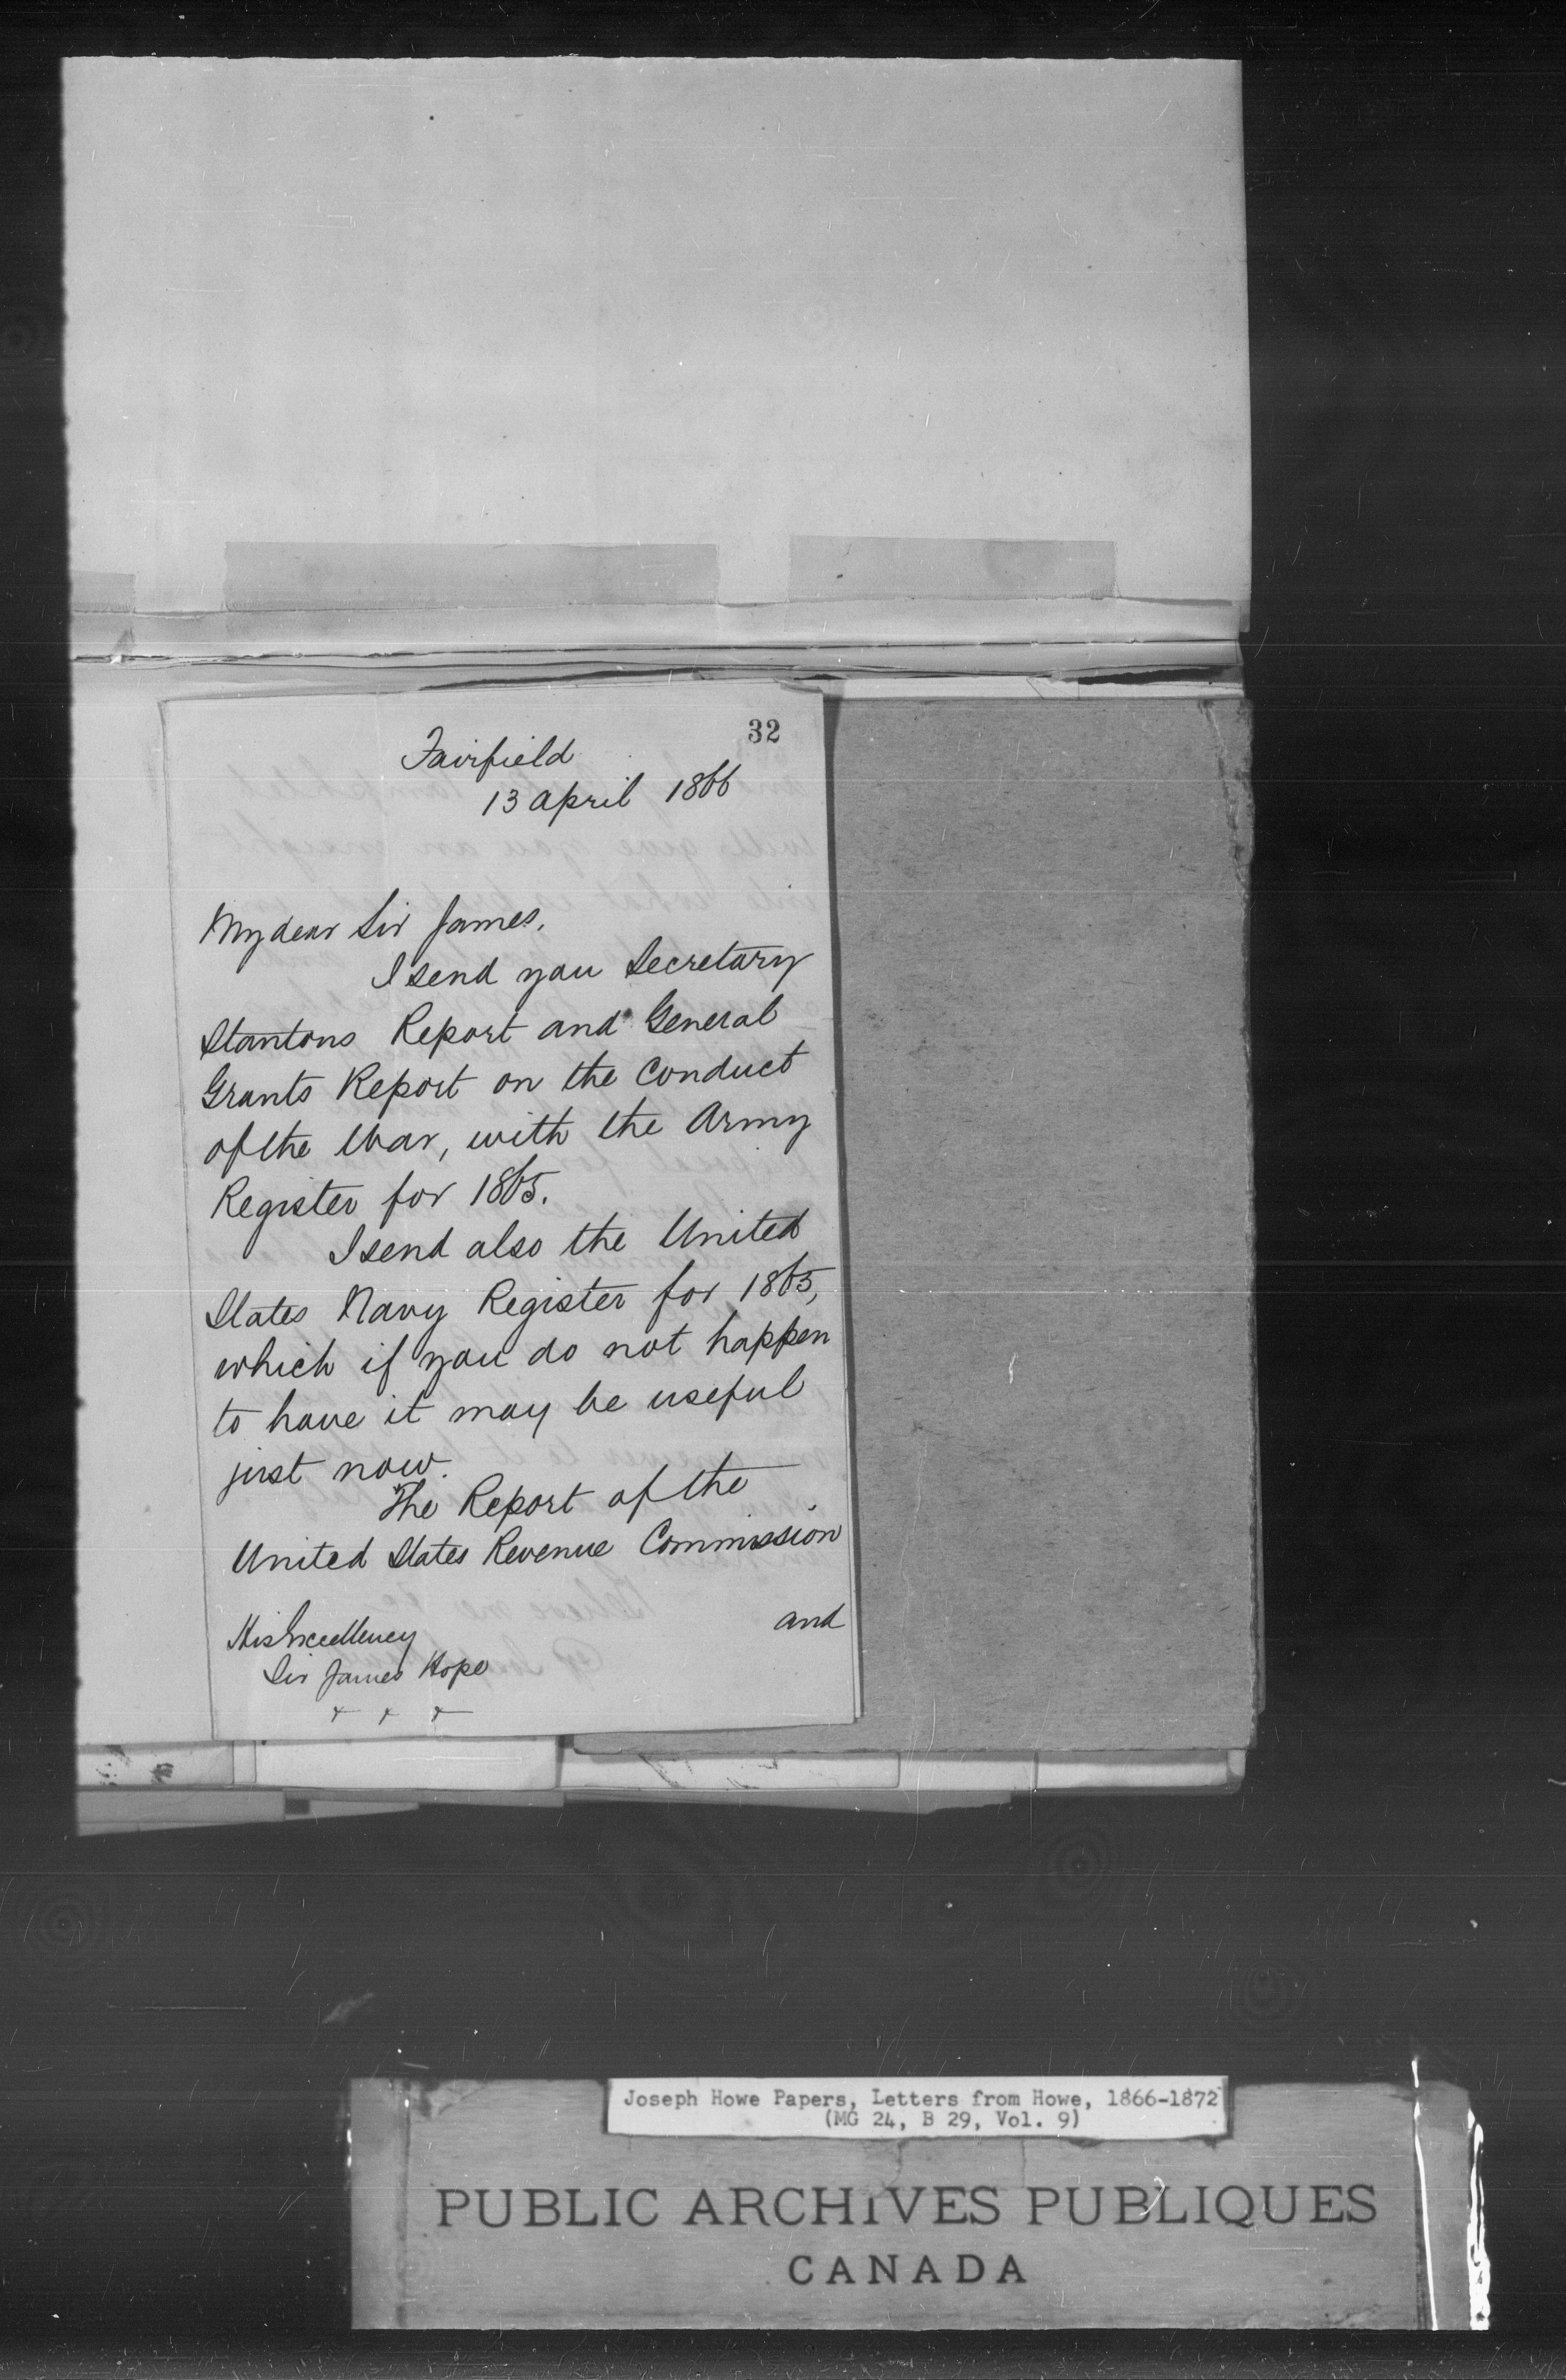 32
Fairfield
13 April 1866
My dear Sir James,
I send you Secretary
Stantons Report and General
Grants Report on the Conduct
of the War, with the Army
Register for 1865.
I send also the United
States Navy Register for 1865,
which if you do not happen
to have it may be useful
just now.
The Report of the
United States Revenue Commission
and
His Excellency
Sir James Hope
+ + +
Joseph Howe Papers, Letters from Howe, 1866-1872
(MG 24, B 29, Vol. 9)
PUBLIC ARCHIVES PUBLIQUES
CANADA